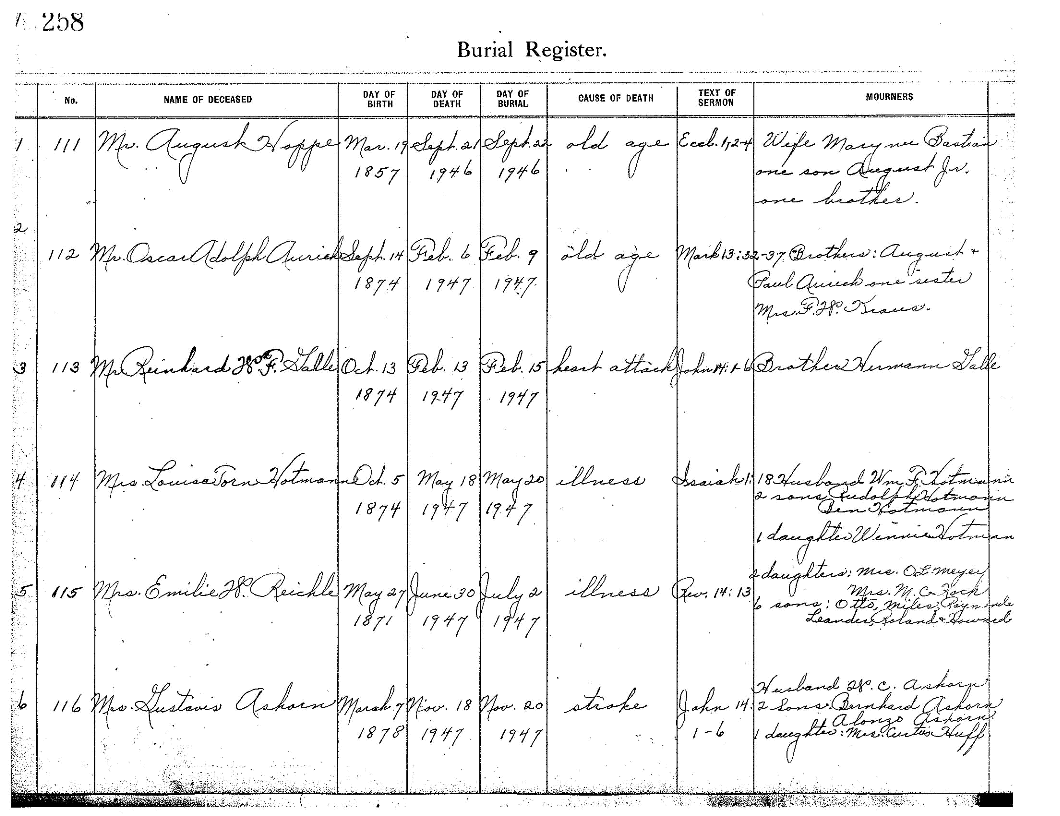 258
Burial Register.
No. NAME OF DECEASED DAY OF BIRTH DAY OF DEATH DAY OF BURIAL CAUSE OF DEATH TEXT OF SERMON MOURNERS
1 111 Mr. August Hoppe Mar. 19 Sept. 21 Sept. 22 old age Eccl. 1,2-4 Wife Mary nee Bastian
1857 1946 1946 one son August Jr.
one brother.
2
112 Mr. Oscar Adolph Aurich Sept. 14 Feb. 6 Feb. 9 old age Mark 13:32-37 Brothers: August +
1874 1947 1947 Paul Aurich one sister
Mrs. F. W. Kraus.
3 113 Mr. Reinhard W. F. Galle Oct. 13 Feb. 13 Feb. 15 heart attack John 14:1-6 Brother Hermann Galle
1874 1947 1947
4 114 Mrs. Louisa Torn Hotmann Oct. 5 May 18 May 20 illness Isaiah 1:18 Husband Wm. F. Hotmann
1874 1947 1947 2 sons Rudolph Hotmann
Ben Hotmann
1 daughter Winnie Hotman
2 daughters: Mrs. O E Meyer
5 115 Mrs. Emilie W. Reichle May 27 June 30 July 2 illness Rev. 14:13 Mrs. M. C. Koch
1871 1947 1947 6 sons: Otto, Miles, Raymond
Leander, Roland + Howard
Husband W. C. Ashorn
6 116 Mrs. Gustavis Ashorn March 7 Nov. 18 Nov. 20 stroke John 14: 2 Sons: Bernhard Ashorn
1878 1947 1947 1-6 Alonzo Ashorn
1 daughter: Mrs. Curtis Huff